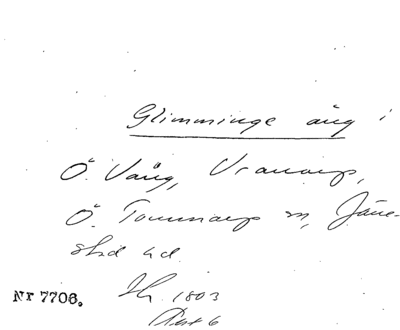 Glimminge äng i
Ö. Vång, Vranarp,
Ö. Tommarp sn, Järre-
stad hd.
Nr 7706.
Jb. 1803
Akt 6